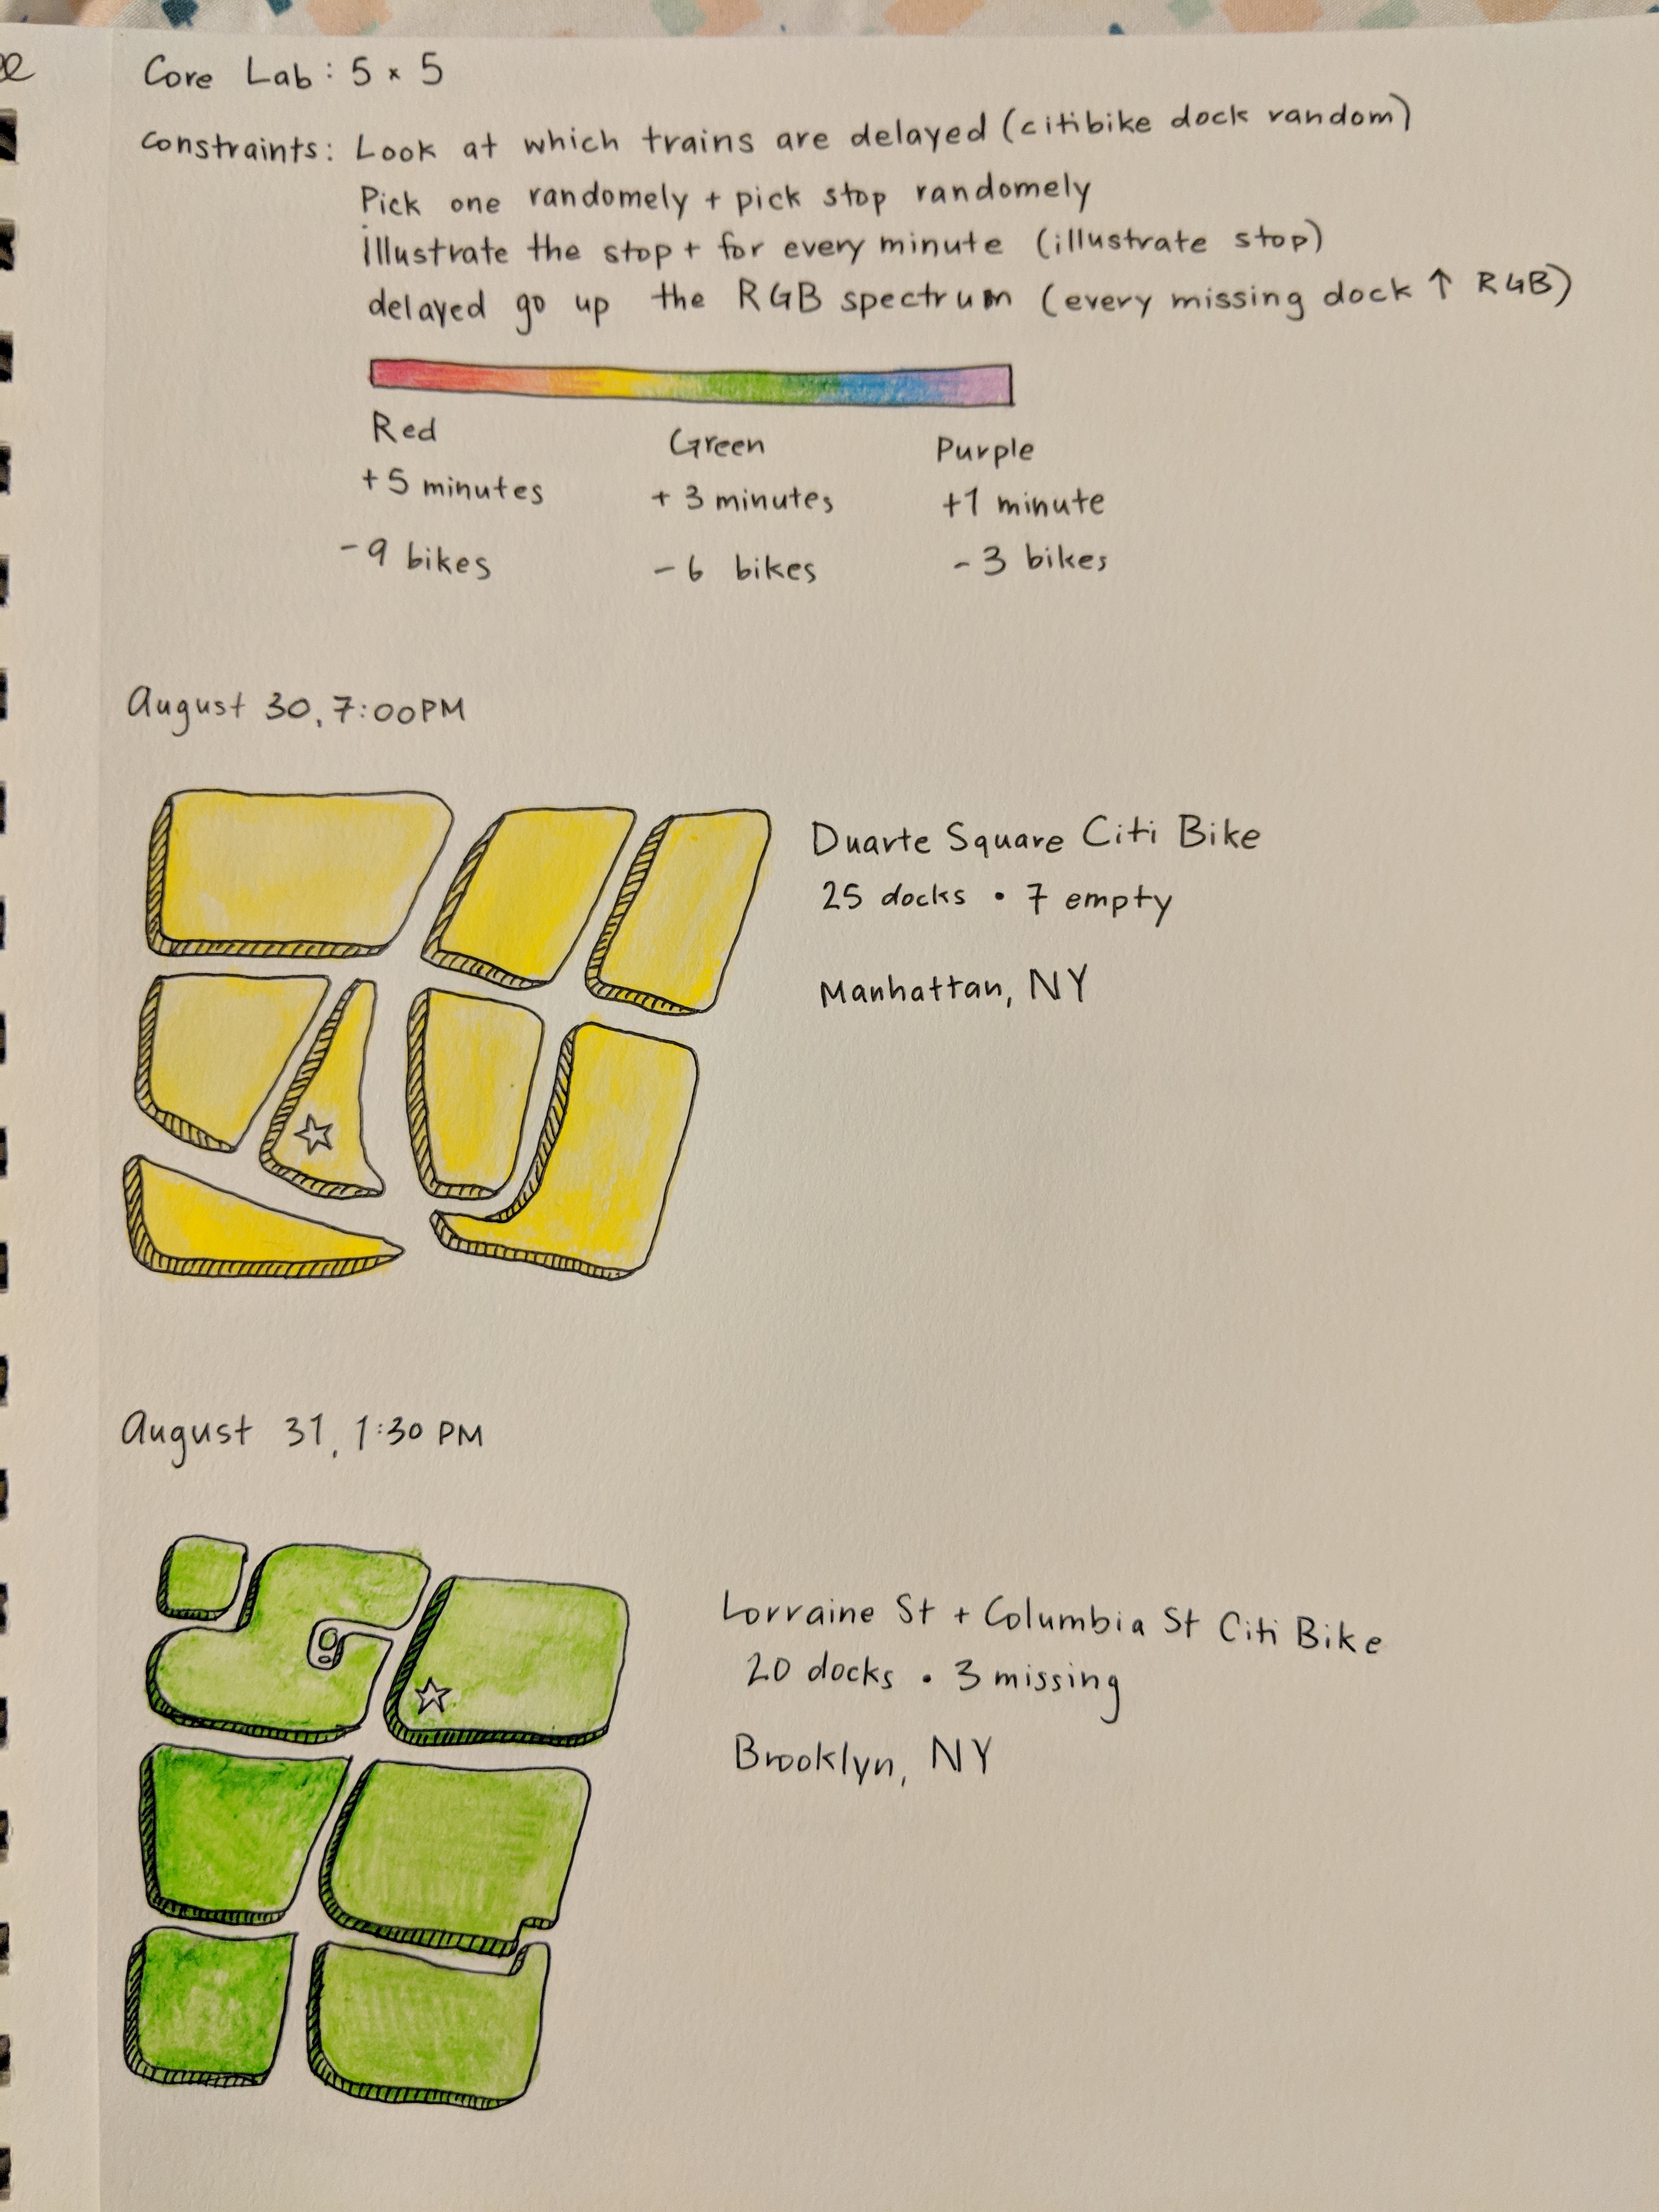 Core Lab: 5 x 5
Constraints: Look at which trains are delayed (citibike dock random)
Pick one randomely + pick stop randomely
illustrate the stop + for every minute (illustrate stop)
delayed go up the RGB spectrum (every missing dock ↑ RGB)
Red Green Purple
+5 minutes + 3 minutes +1 minute
-9 bikes - 6 bikes - 3 bikes
August 30, 7:00PM
Duarte Square Citi Bike
25 docks • 7 empty
Manhattan, NY
August 31, 1:30 PM
Lorraine St + Columbia St Citi Bike
20 docks • 3 missing
Brooklyn, NY